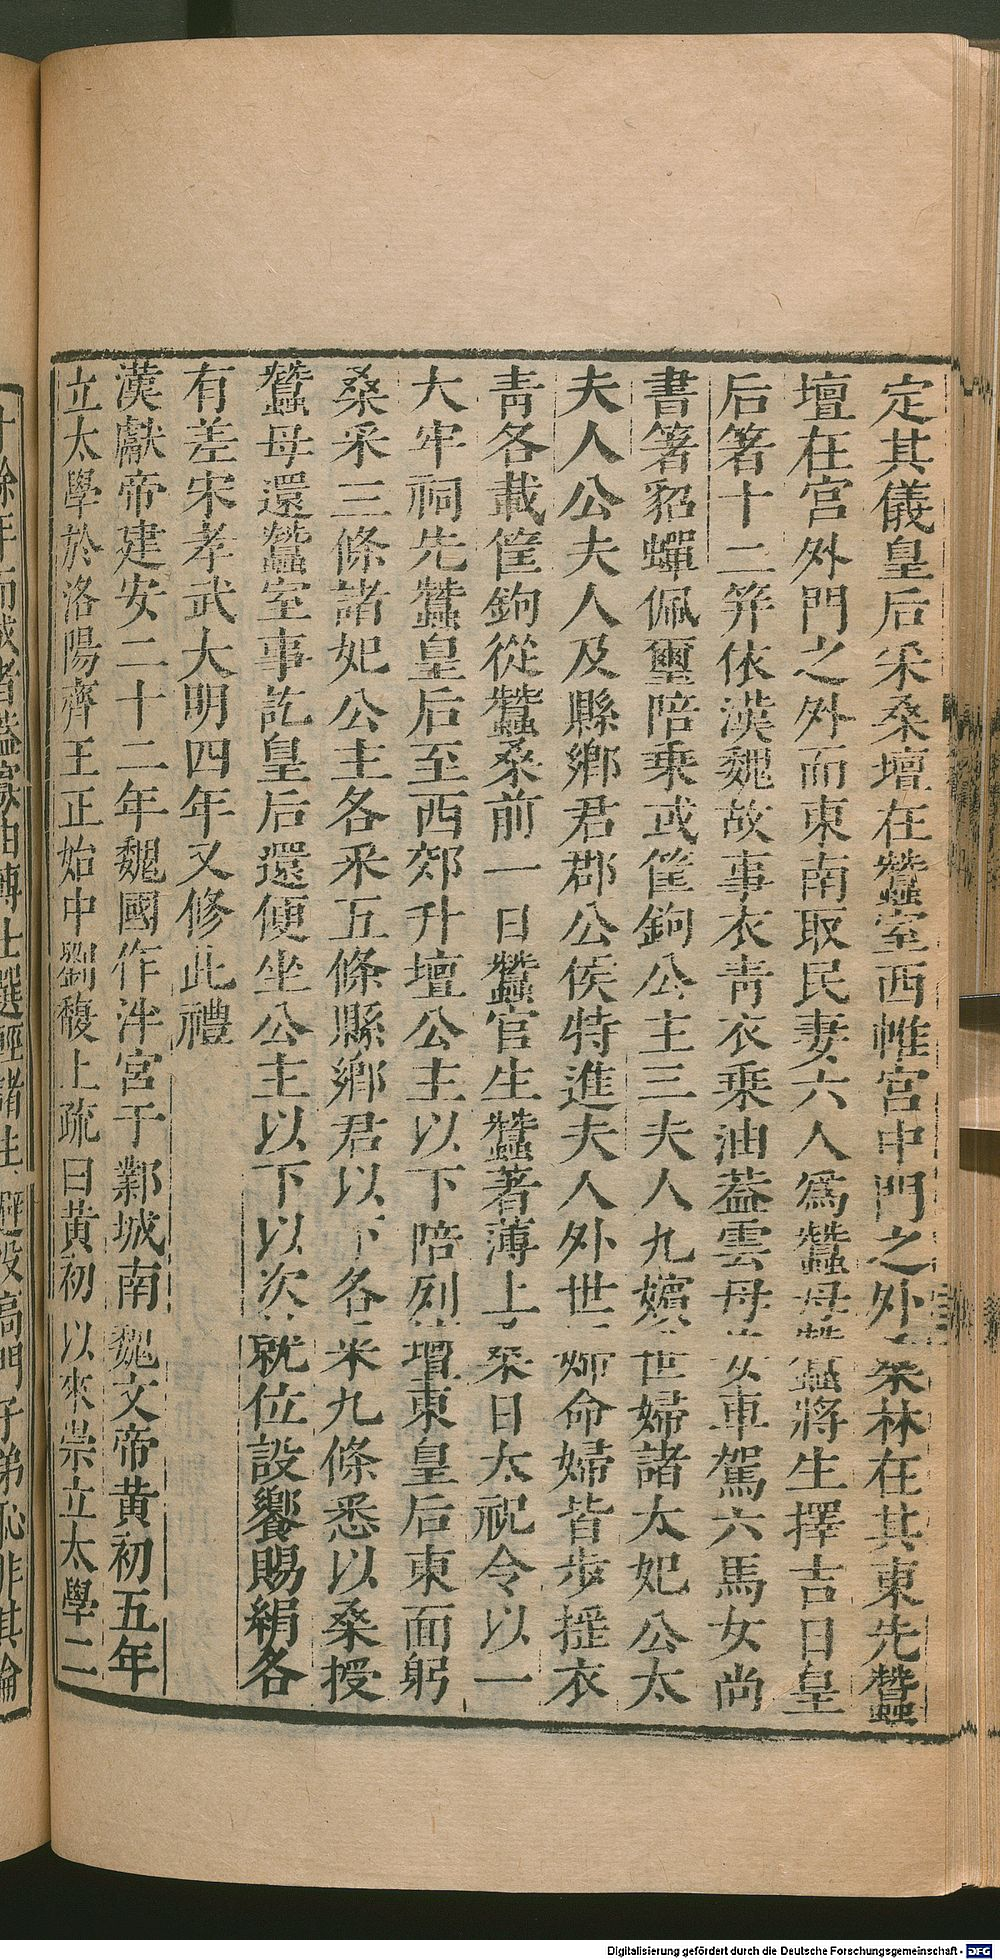 定其儀皇后采桑壇在蠶室西帷宮中門之外桑林在其東先蠶
壇在宮外門之外而東南取民妻六人爲蠶母蠶將生擇吉日皇
后箸十二笄依漢魏故事衣青衣乘油蓋雲母安車駕六馬女尚
書箸貂蟬佩璽陪乘或筐鉤公主三夫人九嬪世婦諸太妃公太
夫人公夫人及縣鄉君郡公侯特進夫人外世婦命婦皆步摇衣
青各載筐鉤從蠶桑前一日蠶官生蠶著薄上桑日太祝令以一
大牢祠先蠶皇后至西郊升壇公主以下陪列壇東皇后東面躬
桑采三條諸妃公主各采五條縣鄉君以下各采九條悉以桑授
蠶母還蠶室事訖皇后還便坐公主以下以次就位設饗賜絹各
有差宋孝武大明四年又修此禮
漢獻帝建安二十二年魏國作泮宮于鄴城南魏文帝黄初五年
立太學於洛陽齊王正始中劉馥上疏曰黄初以來崇立太學二
十餘年而成者蓋寡由博士選輕諸生避役高門子弟恥非其倫
Digitalisierung gefördert durch die Deutsche Forschungsgemeinschaft - DFG